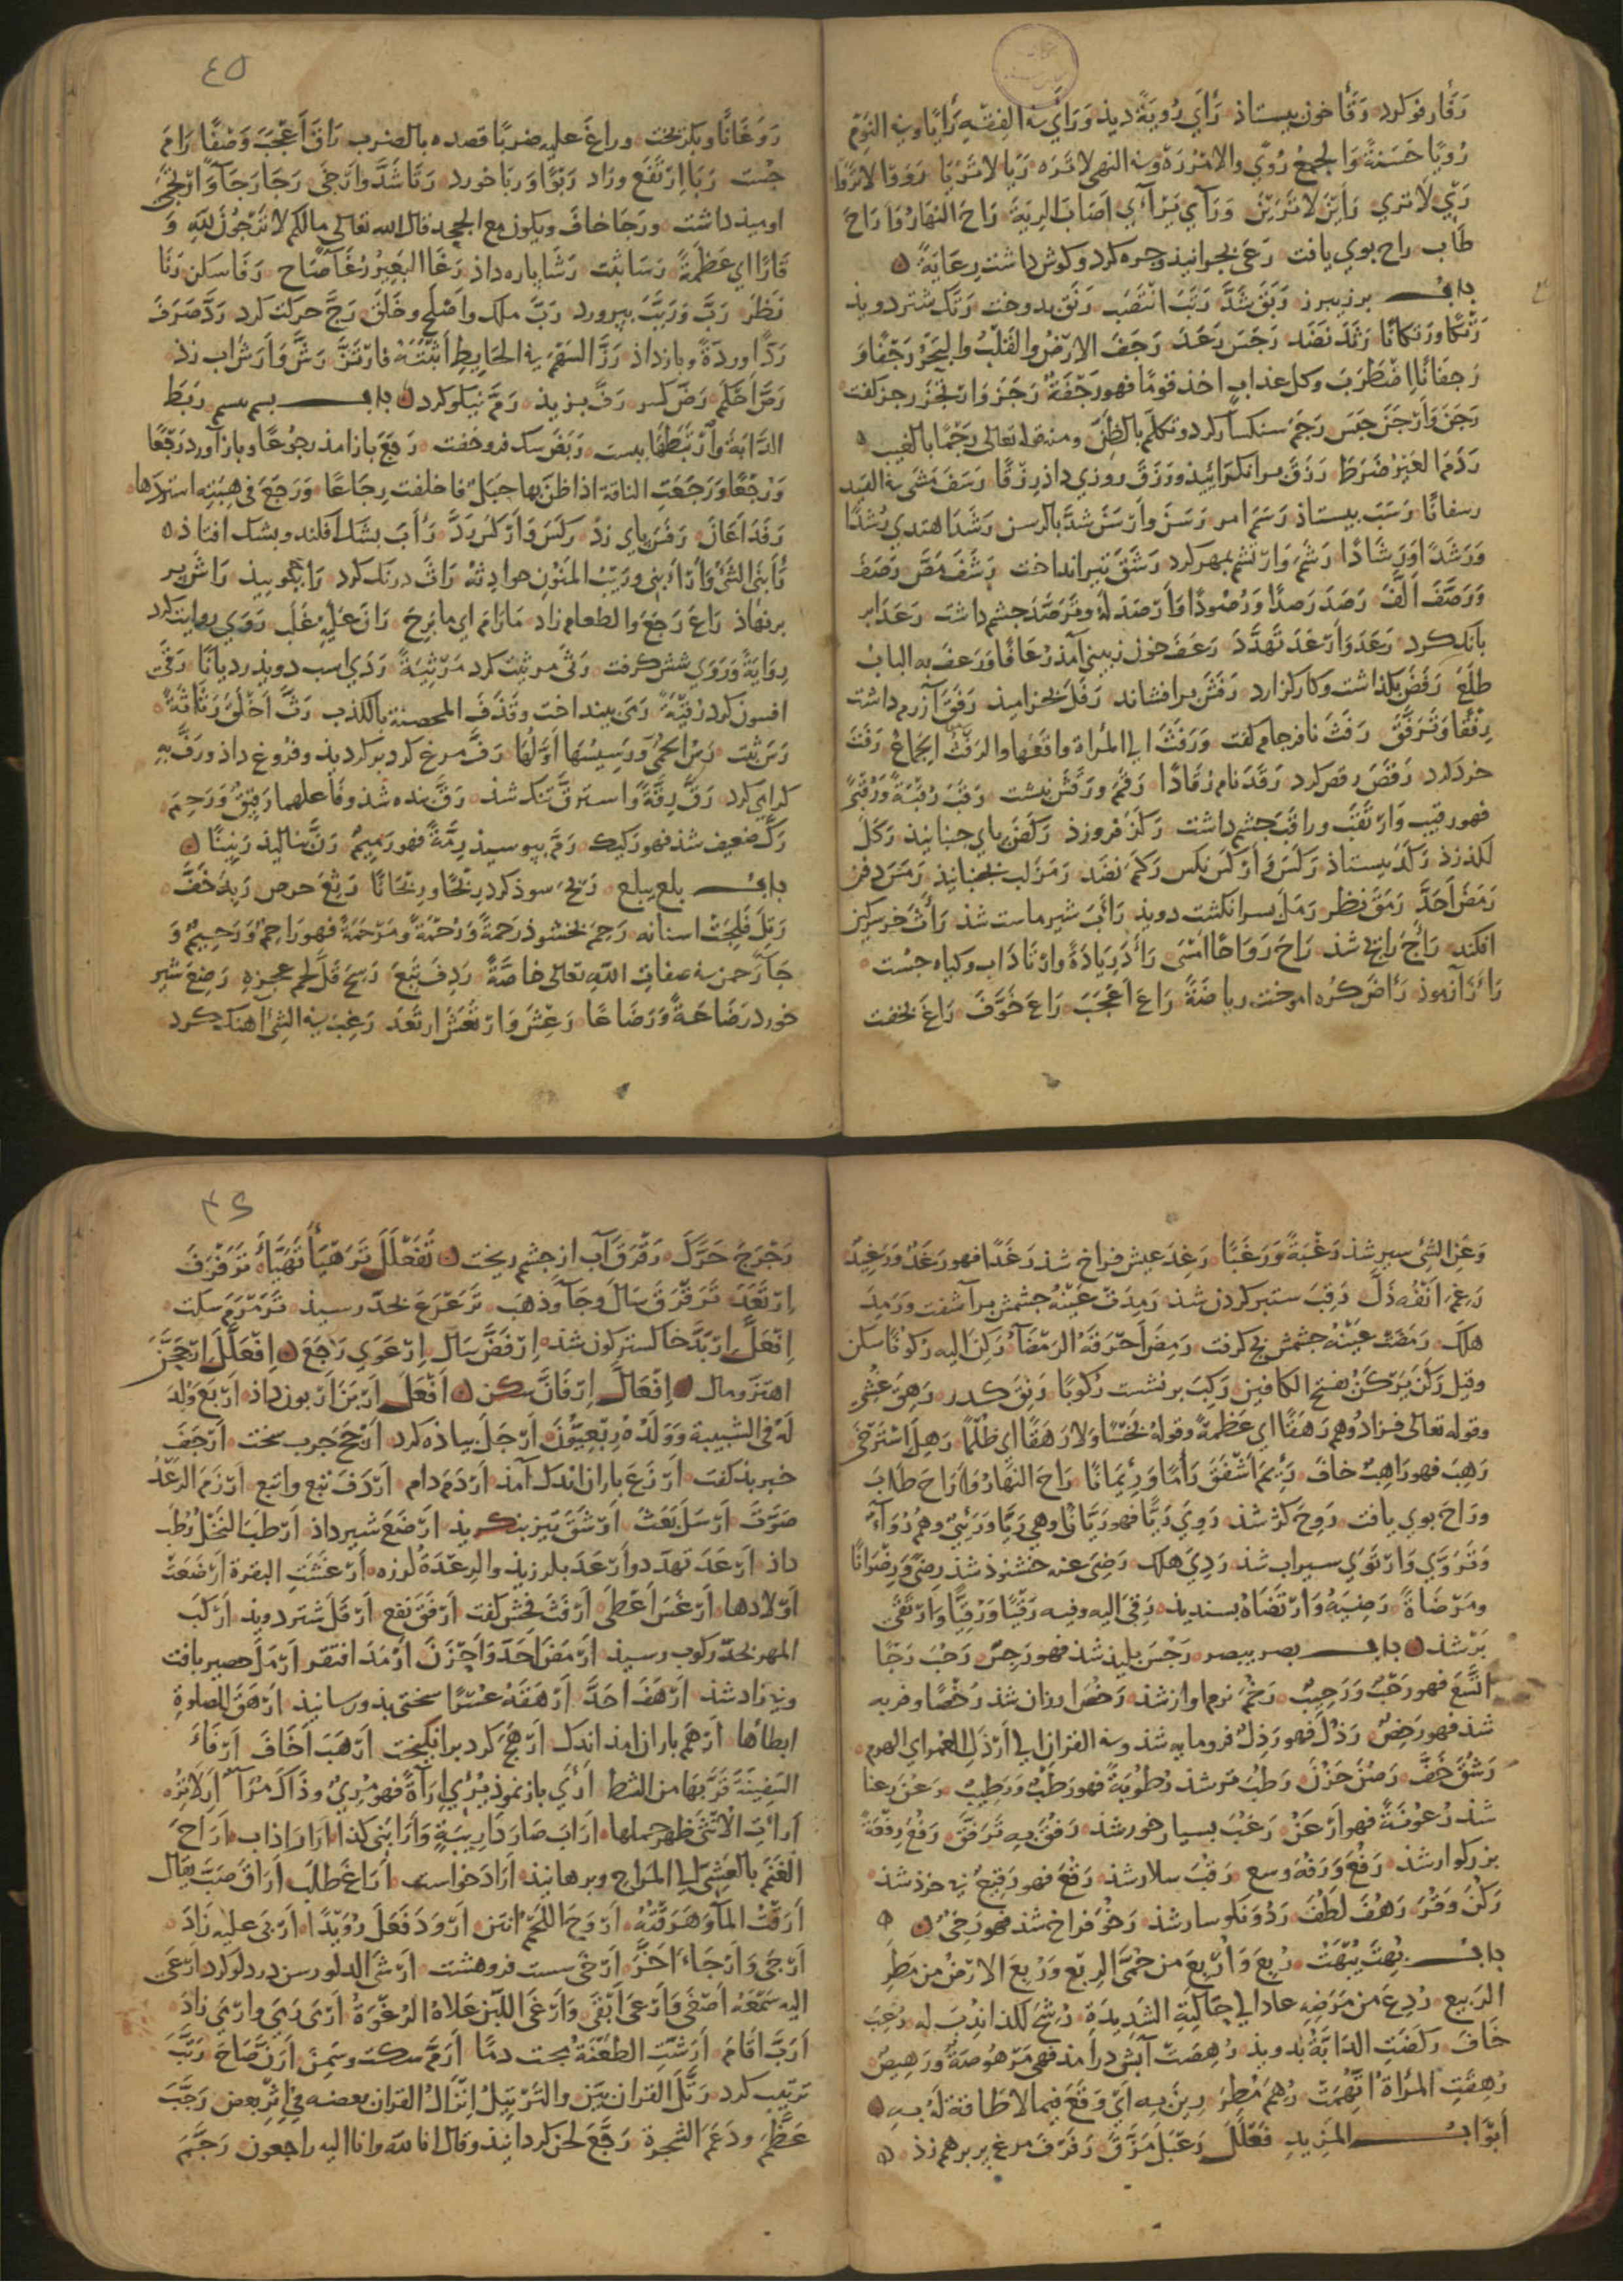 رَفَا رفو کرد رَقَأ خون بیستاذ رَأَي رُویَةً دیذ وَرَأي في الفِقهِ رَأیًا وفي النوم
رُویًا حَسَنةً وَالجمعُ رُوًي والامر رَهْ وفي النهي لا تَرَه رَیَا لا تَرَیَا رَوْا لا تَرَوْا
رَيْ لا تري رَایْنَ لا تَرَیْنَ وَرَآي یَرَاي اَصَابَ الرِیَةَ رَاحَ النهارُ وَاَرَاحَ
طَابَ راح بوي یافت رَعَی بچرانیذ وچره کرد وکوش داشت رِعَایَةً
باب برز یبرز رَبَقَ شَدَّ رَتَبَ انْتَصَبَ رَتَقَ بدوخت رَتَکَ شتر دویذ
رَتْکا وَرَتکانًا رَثَدَ نَضَدَ رَجَسَ رَعَدَ رَجَفَ الارضُ والقلبُ والبحرُ رَجْفًا وَ
رَجفانًا اِضْطَرَبَ وکل عذابٍ اخذ قومًا فهو رَجْفَةٌ رَجَزَ وَارْتَجَزَ رجز کفت
رَجَنَ وَارْجَنَ حَبَسَ رَجَمَ سنکسار کرد وتکلم بالظنّ ومنه قوله تعالی رَجْمًا بالغیب
رَدَمَ العَیْرُ ضَرَطَ رَزَقَ روزي داذ رِزْقًا رَسَفَ مَشَی في القید
رسفانًا رَسَبَ بیستاذ رَسَمَ امر رَسَنَ وَارْسَنَ شدَّ بالرسن رَشَدَ اهتدي رُشْدًا
وَرَشَدًا وَرَشَادًا رَشَمَ وَارْتشم بمهر کرد رَشَقَ تیر انداخت رَشَفَ مَصَّ رَصَفَ
وَرَصَّفَ اَلَّفَ رَصَدَ رَصدًا وَرُصُودًا وَاَرْصَدَ لَهُ وتَرَصَّدَ چشم داشت رَعَدَ ابر
بانک کرد رَعَدَ وَارْعَدَ تَهَدَّدَ رَعَفَ خون زبیني آمذ رُعَافًا وَرَعفَ به البابُ
طَلَعَ رَفَضَ بکذاشت رَفَسَ رَفَلَ بخرامیذ رَفَقَ آزرم داشت
رِفْقًا وَتَرَفَّقَ رَفَثَ نافرجام کفت وَرَفَثَ الي المرأة واقعها والرَفَثُ الجماعُ رَفَتَ
خرد کرد رَقَصَ رقص کرد رَقَدَ نام رُقَادًا رَقَمَ ورَقَّشَ نبشت رَقَبَ رِقْبَةً
فهو رقیب وَارْتَقَبَ وراقَبَ چشم داشت رَکَزَ فروزذ رَکَضَ پاي جنبانیذ رَکَلَ
لکد زذ رَکَدَ بیستاذ رَکَسَ وَاَرْکَسَ نکس رَکَمَ نضد رَمَزَ لب بجنبانیذ رَمَسَ دفن
رَمَضَ اَحَدَّ رَمَقَ نظر رَمَلَ بسر انکشت دویذ رَابَ شیر ماست شذ رَاثَ خر سرکین
افکند رَاجَ رایج شذ رَاحَ رَوَاحًا امْسَی رَادَ رِیَادَةً وارْتَادَ آب وکیاه جُست
رَازَ آزموذ رَاضَ کرّه اموخت ریاضَةً رَاعَ اَعْجَبَ رَاعَ خَوَّفَ رَاغَ
٤٥
رَوَغَانًا وبکریخت وراغَ علیه ضربًا قصده بالضرب رَاقَ اَعْجَبَ وَصَفَا رَامَ
جُست رَبَا اِرْتَفَع وزاد رَبْوًا وَربا خورد رَتَا شَدَّ وَارْخَی رَجَا رَجَآءً وَارْتَجَی
اومیذ داشت ورَجَا خافَ ویکون مع الجحد قال الله تعالی مالکم لا تَرْجُونَ لِلّهِ وَ
قَارًا اي عَظَمَةً رَسَا ثَبَتَ رَشَا پاره داذ رَغَا البَعِیْرُ رُغَآءً صَاحَ رَفَا سکن رَنَا
نَظَرَ رَبَّ وَرَبَّبَ بپرورد رَبَّ ملک واَصْلَحَ وخَلَقَ رَجَّ حرکت کرد رَدَّ صَرَفَ
رَدًّا ورِدَّةً وبازداذ رَزَّ السَهْمَ في الحَایِطِ اَثْبَتَهُ فارْتَزَّ رَشَّ وَاَرَشَّ آب زذ
رَصَّ اَحْکَمَ رَضَّ کسر رَفَّ رَمَّ نیکو کرد باب بسم یبسم رَبَطَ
الدَابةَ وَارْتَبَطَهَا ببست رَبَضَ سک فروخفت رَجَعَ باز امذ رجُوعًا وباز آورد رَجْعًا
وَرَجَعَتِ الناقة اذا ظنّ بها حبَلٌ فاخلفت رِجَاعًا وَرَجَعَ فی هِبَتِهِ استردّها
رَفَدَ اَعَانَ رَفَسَ باي زذ رَکَسَ وَاَرْکَسَ رَدَّ
رَابَنِي الشيءُ ورَیْبُ المَنُونِ حوادِثُهُ رَاثَ درنک کرد رَاشَ پر
برنهاذ رَاعَ رَجَعَ والطعام زاد مَا رَامَ اي ما بَرِحَ رَانَ عَلَیْهِ غَلَبَ رَوَي روایت کرد
رِوَایَةً وَرَوَي رَثَی مرثیت کرد مَرْثِیَةً رَدَي اسب دویذ ردیانًا رَقَی
افسون کرد رُقْیَةً رَمَی بینداخت وقَذَفَ المحصنة بالکذب رَثَّ اَخْلَقَ رَثَاثَةً
رَسَّ ثبت رَسُّ الحُمَّی وَرَسِیْسُهَا اَوَّلُهَا رَفَّ مرغ کرد برکردیذ وفروغ داذ ورَفَّ بِهِ
کرامي کرد رَقَّ رِقَّةً واسترقّ تنک شذ رَقَّ بنده شذ وفَاعلهما رَقِیْقٌ وَرَحِمَ
رَکَّ ضعیف شذ فهو رَکیک رَمَّ بپوسیذ رِمَّةً فهو رَمِیمٌ رَنَّ بنالیذ رَنِیْنًا
باب بلع یبلع رَبحَ سوذ کرد رَبَاحًا حرص رَبِذَ خَفَّ
رَتِلَ فَلِجَتْ اسنانه رَحِمَ بخشوذ رَحمَةً وَرُحْمَةً ومَرْحَمَةً فهو رَاحِمٌ وَرَحِیْمٌ وَ
جَاَ رَحمن في صفات الله تعالی خاصَّةً رَدِفَ تَبِعَ رَسِحَ قَلَّ لحم عجزه رَضِعَ شیر
خورد رَضَاعَةً وَرَضَاعًا رَعِشَ وَارْتَعَشَ ارتَعَدَ رَغِبَ في الشئ اهنک کرد
وَعَنِ الشئ سیر شذ رَغْبَةً وَرَغَبًا رَغِدَ عیش فراخ شذ رَغَدًا فهو رَغَدٌ وَرَغِیدٌ
رَغِمَ اَنْفُهُ ذَلَّ رَقِبَ ستبر کردن شذ رَمِدَتْ عَیْنُهُ چشمش برآشفت ورَمِدَ
هلک رَمِصَتْ عَیْنُهُ چشمش پخ کرفت رَمِضَ اَحْرَقَهُ الرَمْضَآءُ رَکِنَ الیه رکونًا سکن
وقیل رَکَنَ یَرْکَنُ بفتح الکافین رَکِبَ برنشست رُکوبًا رَنِقَ کدر رَهِقَ غَشِیَ
وقوله تعالی فزادُوهُم رَهَقًا اي عَظَمةً وقولهُ بَخْسًا وَلا رَهَقًا اي ظُلْمًا رَهِلَ اسْتَرْخَی
رَهِبَ فهو رَاهِبٌ خافَ رَئِمَ اَشْفَقَ رَاحَ النهَارُ وَاَرَاحَ طابَ
ورَاحَ بوي یافت رَوِحَ کژ شذ رَوِيَ رَیًّا فهو رَیَّانُ وهي رَیَّا وَرَیِّيٌ وهُمْ رُوَآءُ
وَتَرَوَّي وَارْتَوَي سیراب شذ رَدِيَ هلک رَضِيَ عنه خشنوذ شذ رضًي وَرِضْوَانًا
ومَرْضَاةً رَضِیَهُ وَارْتَضَاهُ بسندیذ رَقِيَ الیه وفیه رَقْیًا وَرُقِیًّا وَارْتَقَی
بَرْ شذ باب بصر یبصر رَجُسَ بلیذ شذ فهو رَجِسٌ رَحُبَ رَحْبًا
اتَّسَعَ فهو رَحْبٌ وَرَحِیْبٌ رَخُمَ نرم اواز شذ رَخُصَ ارزان شذ رُخْصًا وفربه
شذ فهو رَخِصٌ رَذُلَ فهو رَذِلٌ فرومایه شذ وفي القران الي اَرْذَلِ العُمُرِ اي الهرم
رَشُقَ خَفَّ رَصُنَ حَزُنَ رَطُبَ تر شذ رُطُوبَةً فهو رَطْبٌ وَرَطِیْبٌ رَعُنَ رعنا
شذ رُعُونَةً فهو اَرْعَنُ رَغُبَ بسیار خور شذ رَفُقَ بِهِ تَرَفَّقَ رَفُعَ رِفْعَةً
بزرکوار شذ رَفُغَ وَرَفُهَ وسع رَقُبَ سلار شذ رَقُعَ فهو رَقِیْعٌ بي خرذ شذ
رَکُنَ وَقُرَ رَهُفَ لَطُفَ رَدُؤَ نکوسار شذ رَخُوَ فراخ شذ فهو رَخِيٌّ
باب بُهِتَ یُبْهَتُ رُبِعَ وَاُرْبِعَ من حُمَّی الرِبْعِ وَرُبِعَ الارْضُ من مَطَرِ
الرَبیع رُدِعَ من مَرَضِهِ عاد الي حَالَتِهِ الشَدِیْدَةِ رُشِّحَ لکذا نُدِبَ له رُعِبَ
خَافَ رکضَتِ الدَابَّةُ بدویذ رُهِصَتْ آبش درامذ فهي مَرْهُوصَةٌ وَرَهِیصٌ
رُهِقَتِ المرْأةُ اتُّهِمَتْ رُهِمَ مُطِرَ رِیْنَ بِهِ اَيْ وَقَعَ فیما لا طاقةَ لَهُ بِهِ
اَبْوَابُ المَزِیدِ فَعْلَلَ رَعْبَلَ مَزَّقَ رَفْرَفَ مرغ پر برهم زذ
٤٦
رَجْرَجَ حَرَّکَ رَقْرَقَ آب از چشم ریخت تَفَعْلَلَ تَرَهْیَأَ تَهَیَّأَ تَرَفْرَفَ
اِرْتَعَدَ تَرَقْرَقَ سَالَ وجَآءَ وذهَبَ تَرَعْرَعَ بحدّ رسیذ تَرَمْرَمَ سکت
اِفْعَلَّ اِرْبَدَّ خاکسترکون شذ اِرْفَضَّ سَال اِرْعَوَي رَجَعَ اِفْعَلَلَّ اِرْجَحَنَّ
اهتزّ ومال اِفْعَالَّ اِرْفَانَّ سکن اَفْعَلَ اَرْبَنَ اَرْبون داذ اَرْبَعَ وُلِدَ
لَهُ فی الشبیبة وَوَلَدُهُ رِبْعِیُّوْنَ اَرْجَلَ بیاذه کرد اَرْجَفَ
خبر بد کفت اَرْزَغَ باران اندک آمذ اَرْدَمَ دام اَرْدَفَ تَبِعَ واتبع اَرْزَمَ الرَعْدُ
صَوَّتَ اَرْسَلَ بَعَثَ اَرْشَقَ تیز بنکریذ ارْضَعَ شیر داذ اَرْطَبَ النَخْلُ رُطَب
داذ اَرْعَدَ تَهَدَّد واَرْعَدَ بلرزیذ والرِعْدَةُ لرزه
اَوْلادها اَرْغَسَ اَعْطَی اَرْفَثَ فحش کفت اَرْفَقَ نفع اَرْقَلَ شتر دویذ اَرْکَبَ
المهر بحدّ رکوب رسیذ اَرْمَضَ اَحَدَّ وَاَحْزَنَ اَرْمَدَ افتقر اَرْمَلَ حصیر بافت
وبي زاد شذ اَرْهَفَ احَدَّ اَرْهَقَهُ عُسْرًا سختي بذو رسانیذ ارْهَقَ الصلوةِ
ابطأها اَرْهَمَ باران امذ اندک اَرْهَجَ کرد برانکیخت اَرْهَبَ اَخَافَ اَرْفَاَ
السَفِیْنَةَ قَرَّبَهَا من الشط اَرَي باز نموذ یُرِي اِرَآءَةً فهو مُرِيٌ وذَاکَ مُرًا اَرِ لا تُرِ
اَرْاَتِ الاُنْثَی ظهر حملها اَرَابَ صَارَ ذَا رِیْبَةٍ وَاَرَابَنِي کذا اَرَارَ اذاب اَرَاحَ
الغَنَمَ بالعَشِيِّ الي المَراحِ وبرهانیذ اَرَادَ خواست اَرَاغَ طَلَبَ اَرَاقَ صَبَّ یقال
اَرَقْتُ المآءَ وَهَرَقْتُهُ اَرْوَحَ اللَحْمُ انتن اَرْوَدَ فَعَلَ رُوَیْدًا اَرْبَی علیه زَادَ
اَرْجَی وَاَرْجَاَ اَخَّرَ اَرْخَی سست فروهشت اَرْشَی الدلو رسن در دلو کرد اَرْعَی
الیه سَمْعَهُ اَصْغَی وَاَرْعَی اَبْقَی وَاَرْغَی اللَبَنُ عَلاهُ الرُغْوَةُ اَرْمَی رَمَی وارْمَی زادَ
اَرَبَّ اَقَامَ اَرَشَّتِ الطَعْنَةُ دمًا اَرَمَّ سکت وسَمِنَ اَرَنَّ صَاحَ رَتَّبَ
ترتیب کرد رَتَّلَ القران بَیَّنَ والتَرْتِیلُ اِنْزَالُ القران بعضه في اِثْرِ بعض رَجَّبَ
عَظَّمَ ودَعَمَ الشجرة رَجَّعَ لحن کردانیذ وقال انا لله وانا الیه راجعون رَجَّمَ